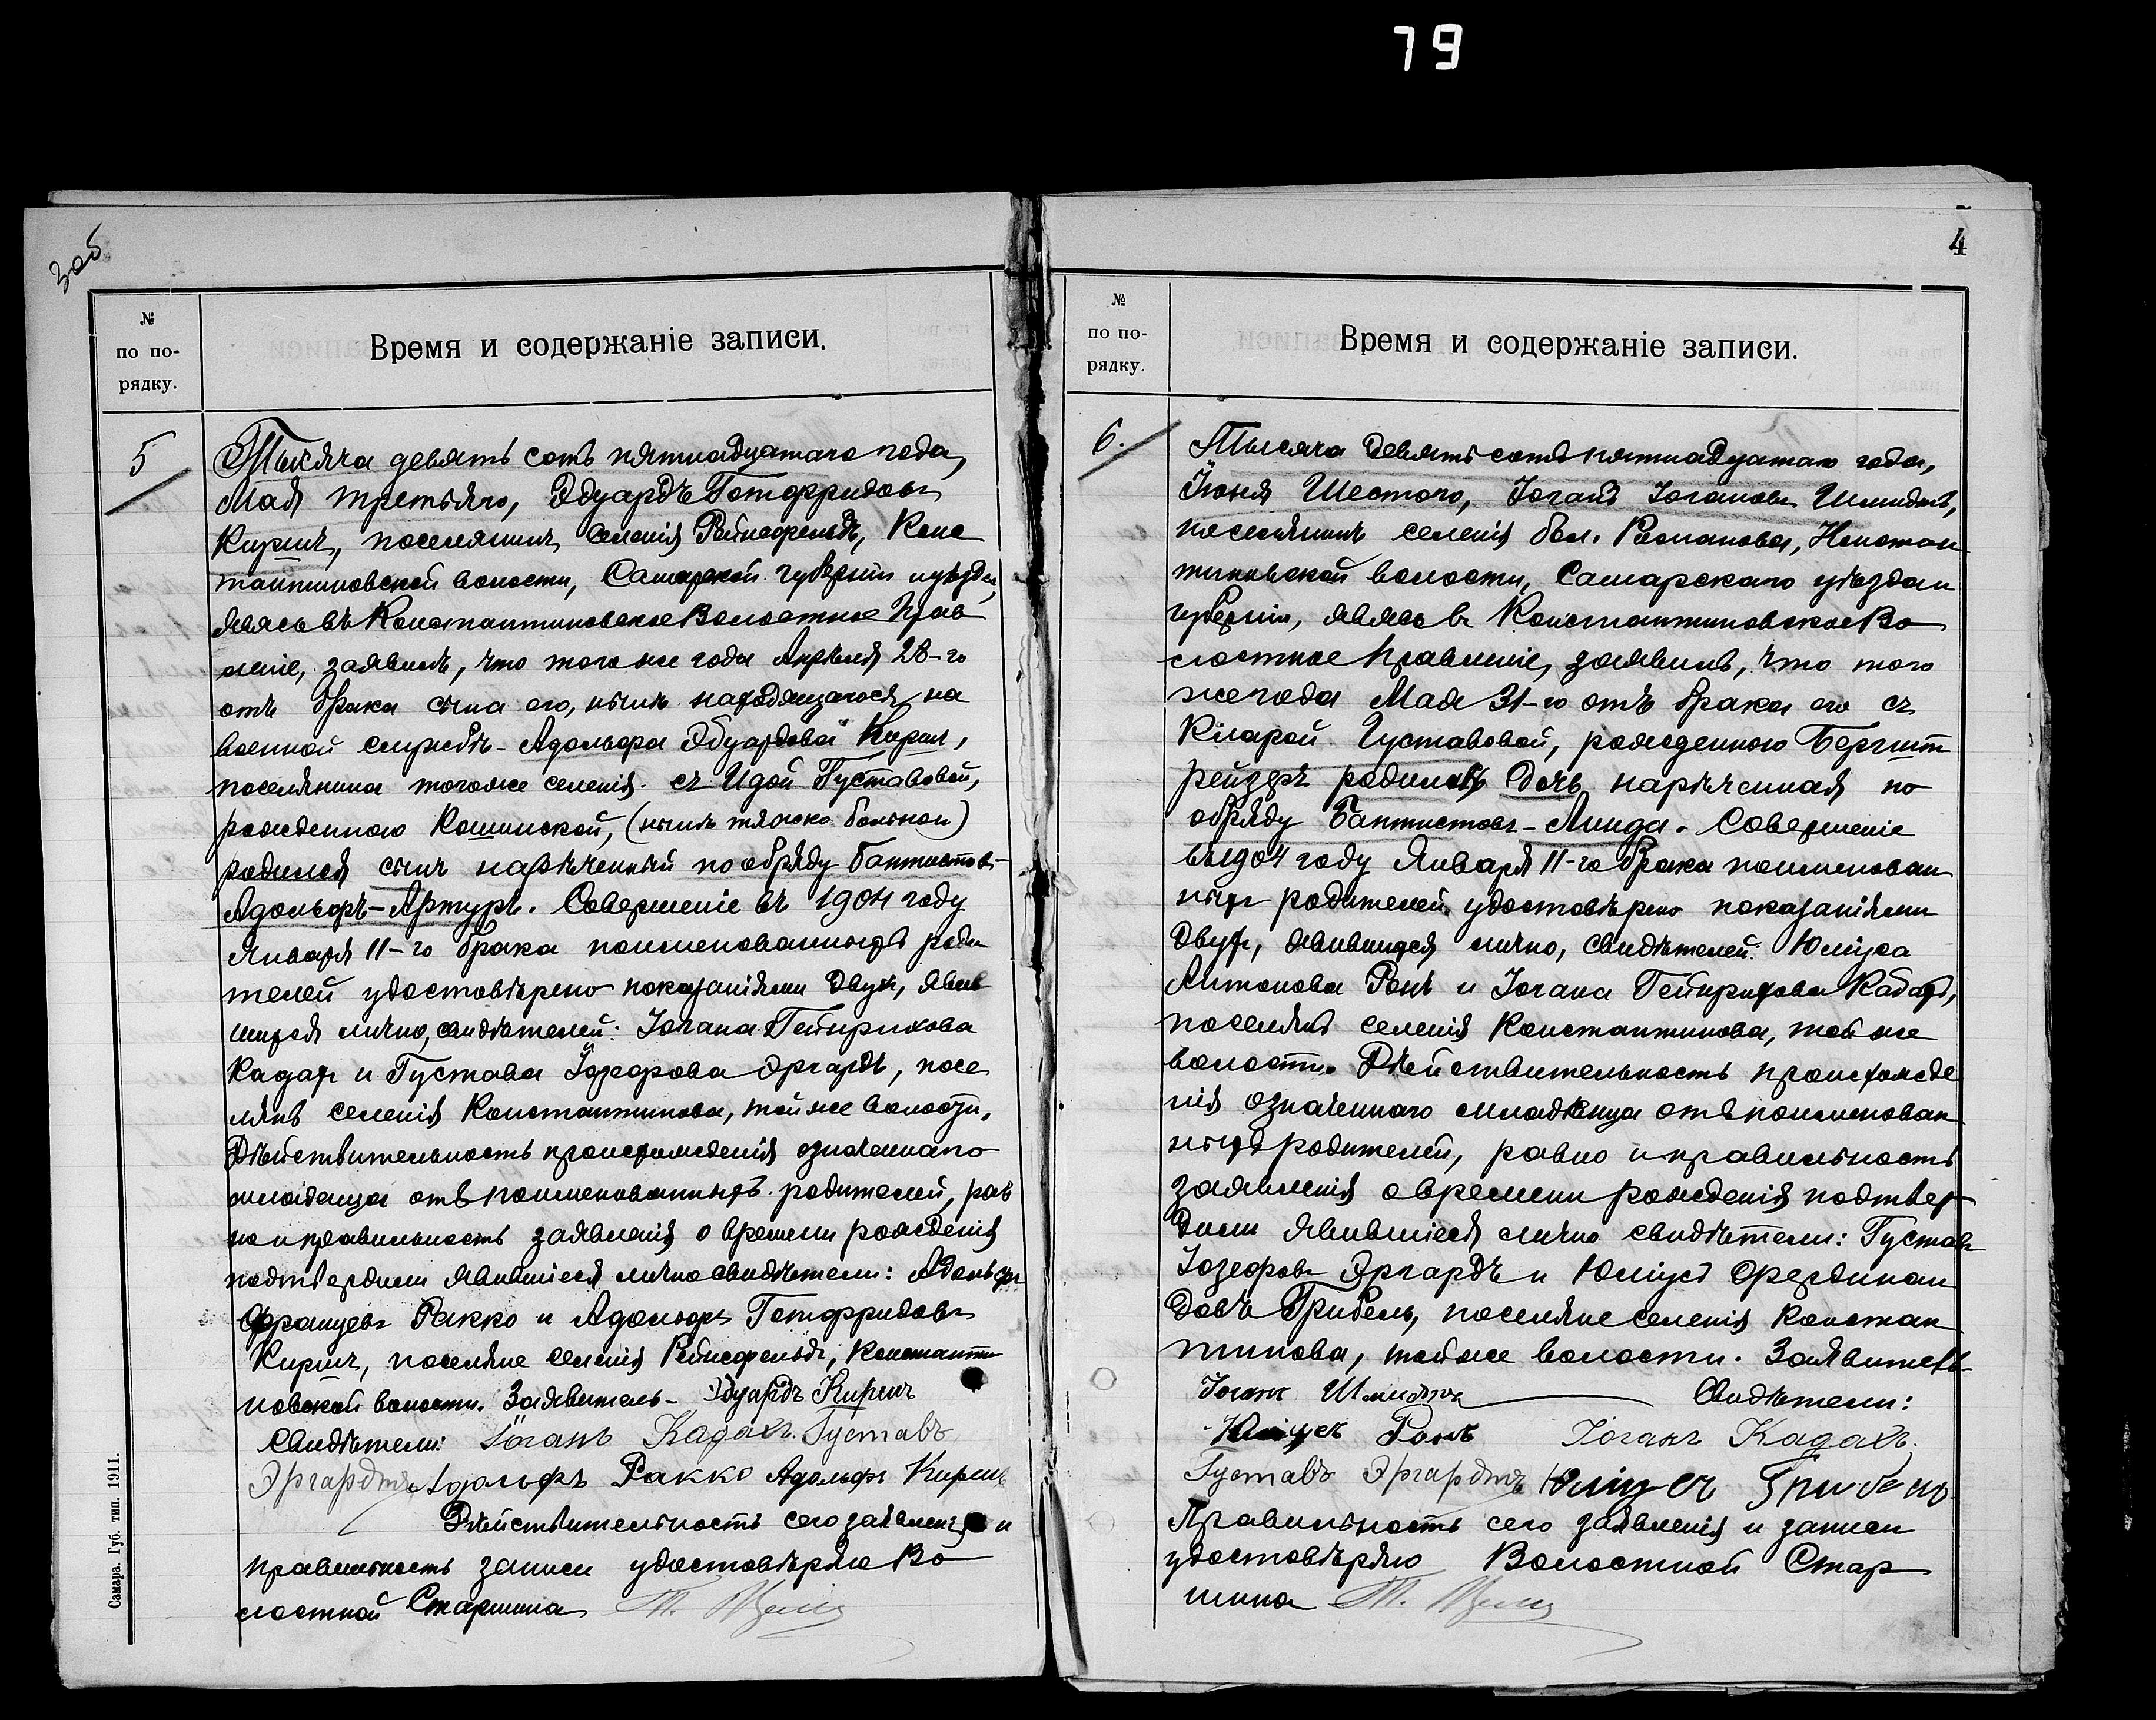 79
4
№
по по-
рядку.
Время и содержаніе записи.
5
Тысяча девять сотъ пятнадцатаго года,
Мая третьяго, Эдуардъ Готфридовъ
Киршъ, поселянинъ селенія Рейнсфельдъ, Конс
тантиновской волости, Самарской губерніи и уѣзда,
явясь въ Константиновское Волостное Прав
леніе, заявилъ, что того же года Апрѣля 28-го
отъ брака сына его, нынѣ находящагося на
военной службѣ - Адольфа Эдуардова Киршъ,
поселянина того же селенія съ Идой Густавовой,
рожденною Кашинской, (нынѣ тяжко больной)
родился сынъ нарѣченный по обряду баптистовъ-
Адольфъ-Артуръ. Совершеніе въ 1904 году
Января 11-го брака поименованныхъ роди
телей удостовѣрено показаніями двухъ, явив
шихся лично, свидѣтелей: Іогана Гейнрихова
Кадахъ и Густава Іозефова Эргардъ, посе
лянъ селенія Константинова, той же волости.
Дѣйствительность происхожденія означеннаго
младенца отъ поименованныхъ родителей, рав
но и правильность заявленія о времени рожденія
подтвердили явившіеся лично свидѣтели: Адольфъ
Францевъ Ракко и Адольфъ Готфридовъ
Киршъ, поселяне селенія Рейнсфельдъ, Константи
новской волости. Заявитель - Эдуардъ Киршъ
Свидѣтели: Іоганъ Кадахъ. Густавъ
Эргардтъ Адольфъ Ракко Адольфъ Киршъ
Дѣйствительность сего заявленія и
правильность записи удостовѣряю Во
лостной Старшина
Самара. Губ. тип. 1911.
№
по по-
рядку.
Время и содержаніе записи.
6.
Тысяча девять сотъ пятнадцатаго года,
Іюня Шестого, Іоганъ Іогановъ Шмидтъ,
поселянинъ селенія бол. Романовка, Констан
тиновской волости, Самарскаго уѣзда и
губерніи, явясь въ Константиновское Во
лостное Правленіе, заявилъ, что того
же года Мая 31-го отъ брака его съ
Кларой Густавовой, рожденною Бергшт
рейзеръ родилась дочь нарѣченная по
обряду Баптистовъ - Линда. Совершеніе
въ 1904 году Января 11-го брака поименован
ныхъ родителей удостовѣрено показаніями
двухъ, явившихся лично, свидѣтелей: Юліуса
Антонова Ронъ и Іогана Гейнрихова Кадахъ,
поселянъ селенія Константинова, той же
волости. Дѣйствительность происхожде
нія означеннаго младѣнца отъ поименован
ныхъ родителей, равно и правильность
заявленія о времени рожденія подтвер
дили явившіеся лично свидѣтели: Густавъ
Іозефовъ Эргардъ и Юліусъ Фердинан
довъ Грибель, поселяне селенія Констан
тинова, той же волости. Заявитель
Іоганъ Шмидтъ Свидѣтели:
Юліусъ Ронъ Іоганъ Кадахъ.
Густавъ Эргардтъ Юліусъ Грибель
Правильность сего заявленія и записи
удостовѣряю Волостной Стар
шина